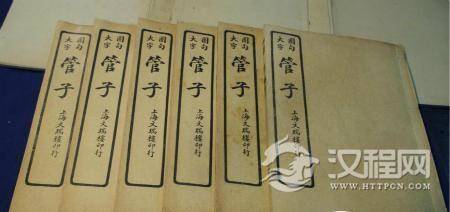 圈句
大字
管子
上海文瑞樓印行
圈句
大字
管子
上海文瑞樓印行
圈句
大字
管子
上海文瑞樓印行
圈句
大字
管子
上海文瑞樓印行
圈句
大字
管子
上海文瑞樓印行
圈句
大字
管子
上海文瑞樓印行
汉程网
WWW.HTTPCN.COM